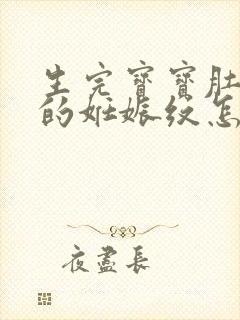 生完寶寶肚
的妊娠紋怎
夜盡長